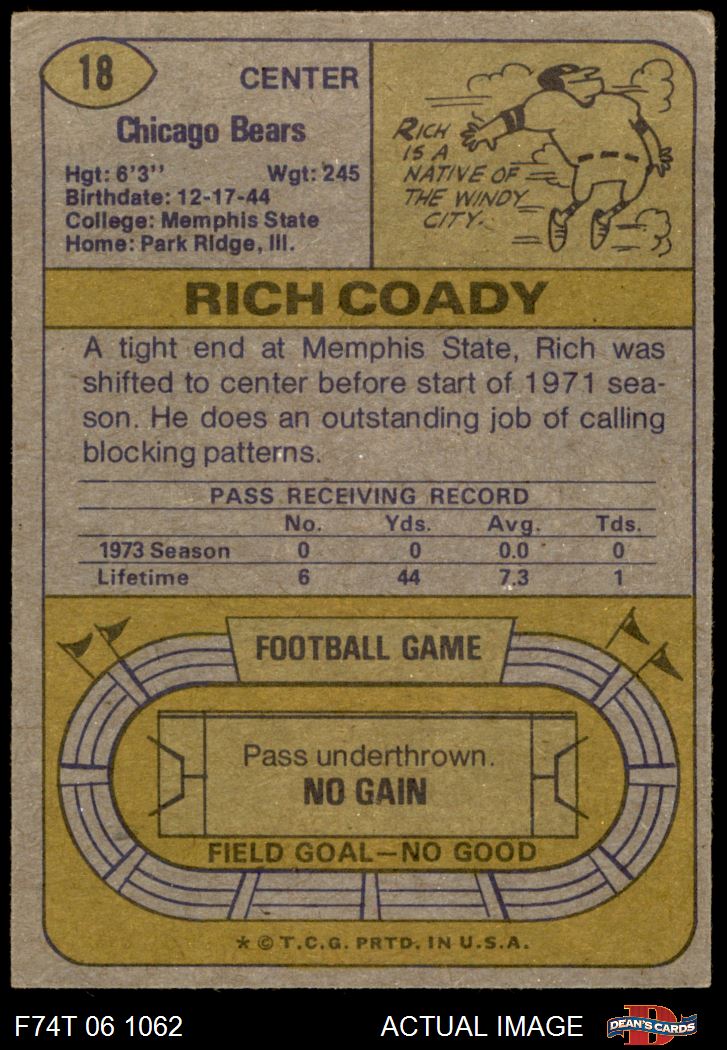 18
CENTER
Chicago Bears
Hgt: 6'3'' Wgt: 245
Birthdate: 12-17-44
College: Memphis State
Home: Park Ridge, Ill.
RICH
IS A
NATIVE OF
THE WINDY
CITY.
RICH COADY
A tight end at Memphis State, Rich was
shifted to center before start of 1971 sea-
son. He does an outstanding job of calling
blocking patterns.
PASS RECEIVING RECORD
No. Yds. Avg. Tds.
1973 Season 0 0 0.0 0
Lifetime 6 44 7.3 1
FOOTBALL GAME
Pass underthrown.
NO GAIN
FIELD GOAL—NO GOOD
* © T.C.G. PRTD. IN U.S.A.
F74T 06 1062 ACTUAL IMAGE
D
DEAN'S CARDS